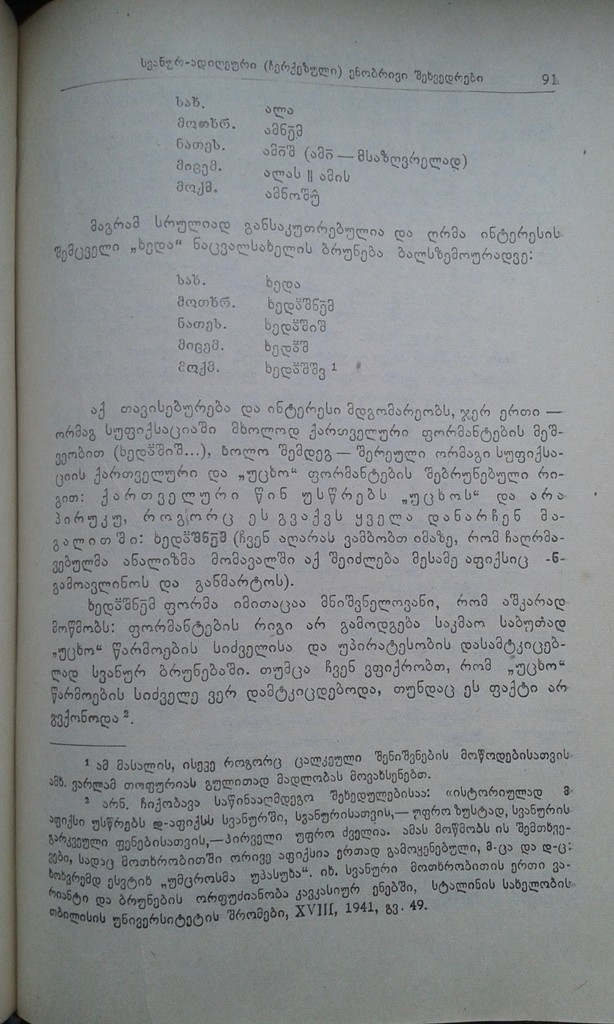 სვანურ-ადიღეური (ჩერქეზული) ენობრივი შეხვედრები 91
სახ. ალა
მოთხრ. ამნე̄მ
ნათეს. ამიშ (ამი — მსაზღვრელად)
მიცემ. ალას || ამის
მოქმ. ამნოშუ̂
მაგრამ სრულიად განსაკუთრებულია და ღრმა ინტერესის
შემცველი „ხედა“ ნაცვალსახელის ბრუნება ბალსზემოურადვე:
სახ. ხედა
მოთხრ. ხედა̈შნე̄მ
ნათეს. ხედა̈შიშ
მიცემ. ხედა̈შ
მოქმ. ხედა̈შშვ ¹
აქ თავისებურება და ინტერესი მდგომარეობს, ჯერ ერთი —
ორმაგ სუფიქსაციაში მხოლოდ ქართველური ფორმანტების მეშ-
ვეობით (ხედა̈შიშ...), ხოლო შემდეგ — შერეული ორმაგი სუფიქსა-
ციის ქართველური და „უცხო“ ფორმანტების შებრუნებული რი-
გით: ქართველური წინ უსწრებს „უცხოს“ და არა
პირუკუ, როგორც ეს გვაქვს ყველა დანარჩენ მა-
გალითში: ხედა̈შნე̄მ (ჩვენ აღარას ვამბობთ იმაზე, რომ ჩაღრმა-
ვებულმა ანალიზმა მომავალში აქ შეიძლება მესამე აფიქსიც -ნ-
გამოავლინოს და განმარტოს).
ხედა̈შნე̄მ ფორმა იმითაცაა მნიშვნელოვანი, რომ აშკარად
მოწმობს: ფორმანტების რიგი არ გამოდგება საკმაო საბუთად
„უცხო“ წარმოების სიძველისა და უპირატესობის დასამტკიცებ-
ლად სვანურ ბრუნებაში. თუმცა ჩვენ ვფიქრობთ, რომ „უცხო“
წარმოების სიძველე ვერ დამტკიცდებოდა, თუნდაც ეს ფაქტი არ
გვქონოდა ².
¹ ამ მასალის, ისევე როგორც ცალკეული შენიშვნების მოწოდებისათვის
ამხ. ვარლამ თოფურიას გულითად მადლობას მოვახსენებთ.
² არნ. ჩიქობავა საწინააღმდეგო შეხედულებისაა: «ისტორიულად მ
აფიქსი უსწრებს დ-აფიქსს სვანურში, სვანურისათვის,— უფრო ზუსტად, სვანურის
გარკვეული ფენებისათვის,—პირველი უფრო ძველია. ამას მოწმობს ის შემთხვე-
ვები, სადაც მოთხრობითში ორივე აფიქსია ერთად გამოყენებული, მ-ცა და დ-ც:
ხოხვრემდ ესვტიხ „უმცროსმა უპასუხა“. იხ. სვანური მოთხრობითის ერთი ვა-
რიანტი და ბრუნების ორფუძიანობა კავკასიურ ენებში, სტალინის სახელობის
თბილისის უნივერსიტეტის შრომები, XVIII, 1941, გვ. 49.